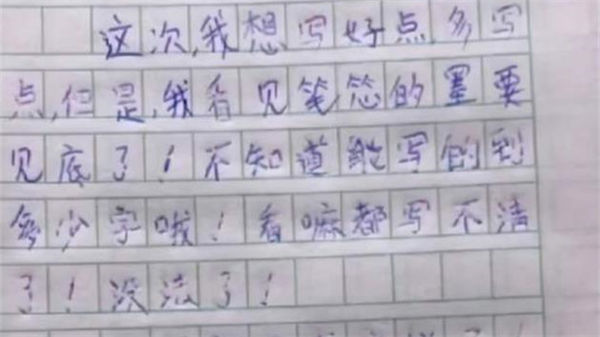 这次,我想写好点,多写
点,但是,我看见笔芯的墨要
见底了!不知道能写的到
多少字哦!看嘛都写不清
了!没法了!